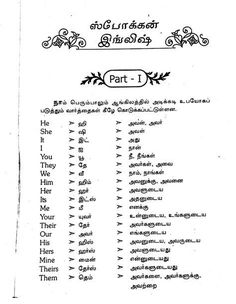 ஸ்போக்கன்
இங்லிஷ்
Part - I
நாம் பெரும்பாலும் ஆங்கிலத்தில் அடிக்கடி உபயோகப்
படுத்தும் வார்த்தைகள் கீழே கொடுக்கப்பட்டுள்ளன.
He > ஹி > அவன், அவர்
She > ஷி > அவள்
It > இட் > அது
I > ஐ > நான்
You > யூ > நீ, நீங்கள்
They > தே > அவர்கள், அவை
We > வீ > நாம், நாங்கள்
Him > ஹிம் > அவனுக்கு, அவனை
Her > ஹெர் > அவளுடைய
Its > இட்ஸ் > அதனுடைய
Me > மீ > எனக்கு
Your > யுவர் > உன்னுடைய, உங்களுடைய
Their > தேர் > அவர்களுடைய
Our > அவர் > எங்களுடைய
His > ஹிஸ் > அவனுடைய, அவருடைய
Hers > ஹெர்ஸ் > அவளுடையது
Mine > மைன் > என்னுடையது
Theirs > தேர்ஸ் > அவர்களுடையது
Them > தெம் > அவர்களை, அவர்களுக்கு,
அவற்றை